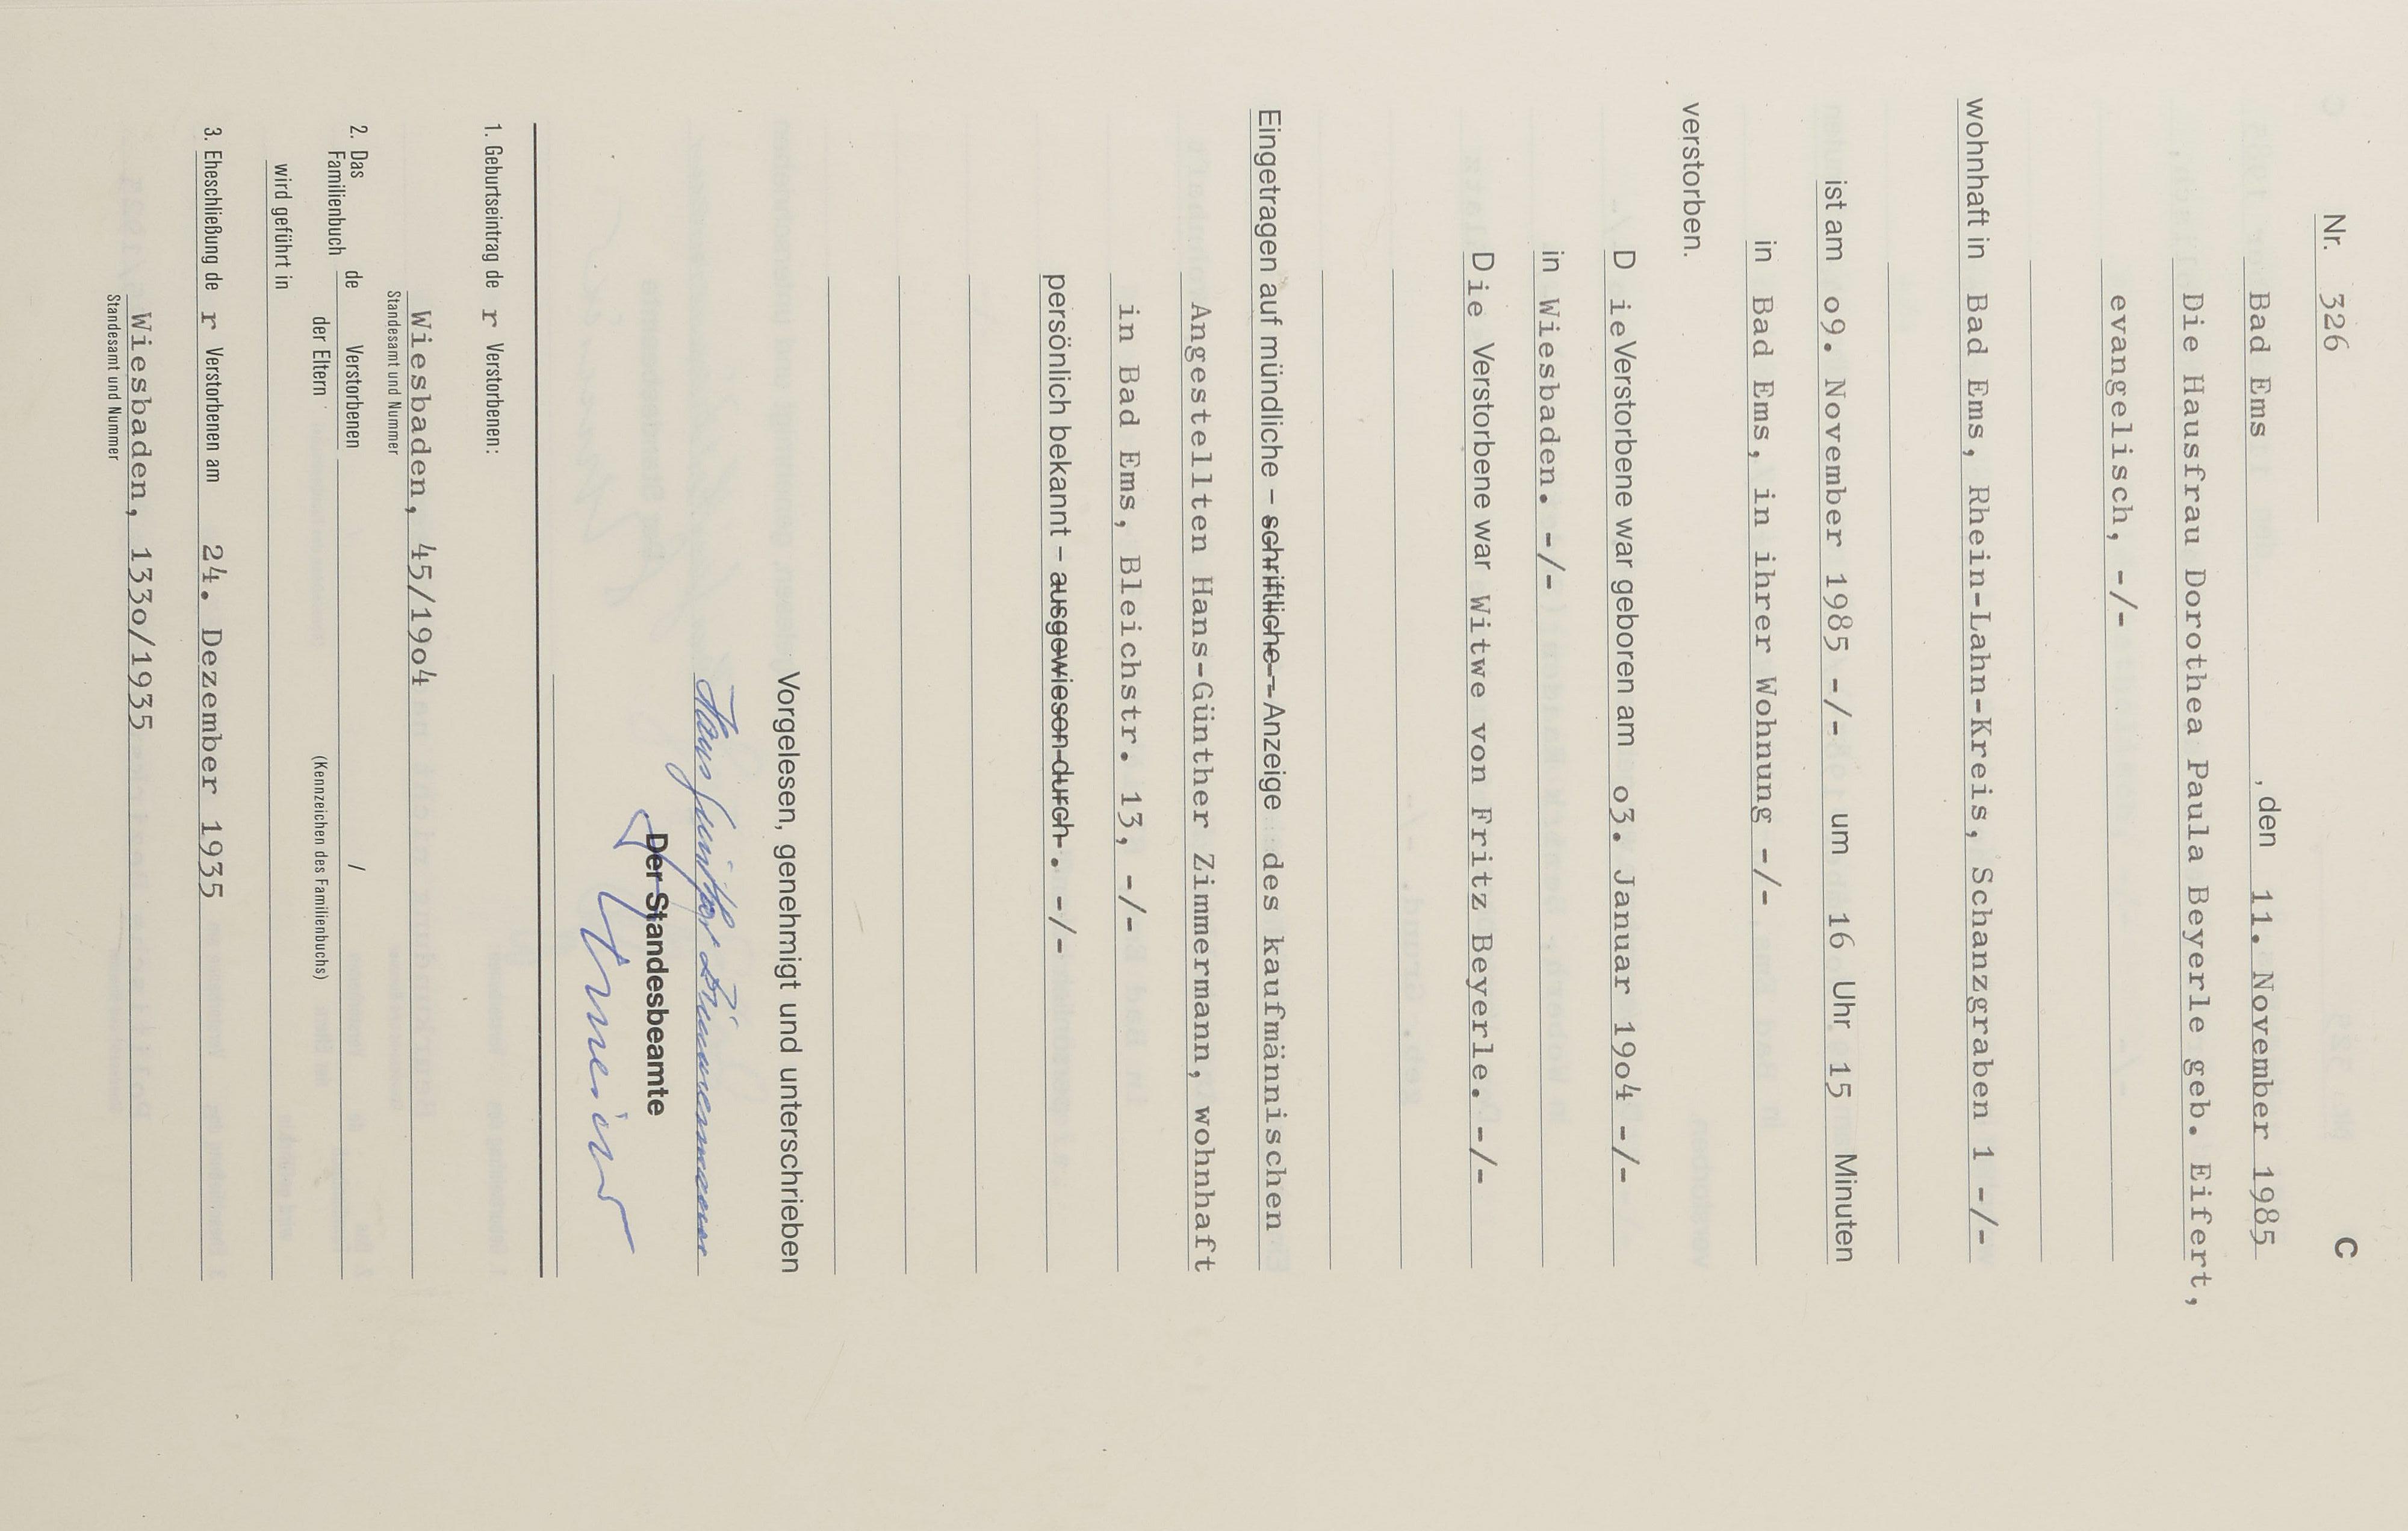 C
Nr. 326
Bad Ems , den 11. November 1985
Die Hausfrau Dorothea Paula Beyerle geb. Eifert,
evangelisch, -/-
wohnhaft in Bad Ems, Rhein-Lahn-Kreis, Schanzgraben 1 -/-
ist am o9. November 1985 -/- um 16 Uhr 15 Minuten
in Bad Ems, in ihrer Wohnung -/-
verstorben.
D ie Verstorbene war geboren am o3. Januar 19o4 -/-
in Wiesbaden. -/-
D ie Verstorbene war Witwe von Fritz Beyerle. -/-
Eingetragen auf mündliche – schriftliche – Anzeige des kaufmännischen
Angestellten Hans-Günther Zimmermann, wohnhaft
in Bad Ems, Bleichstr. 13, -/-
persönlich bekannt – ausgewiesen durch . -/-
Vorgelesen, genehmigt und unterschrieben
Hans Günther Zimmermann
Der Standesbeamte
1. Geburtseintrag de r Verstorbenen:
Wiesbaden, 45/19o4
Standesamt und Nummer
2. Das Familienbuch de Verstorbenen /
der Eltern (Kennzeichen des Familienbuchs)
wird geführt in
3. Eheschließung de r Verstorbenen am 24. Dezember 1935
Wiesbaden, 133o/1935
Standesamt und Nummer